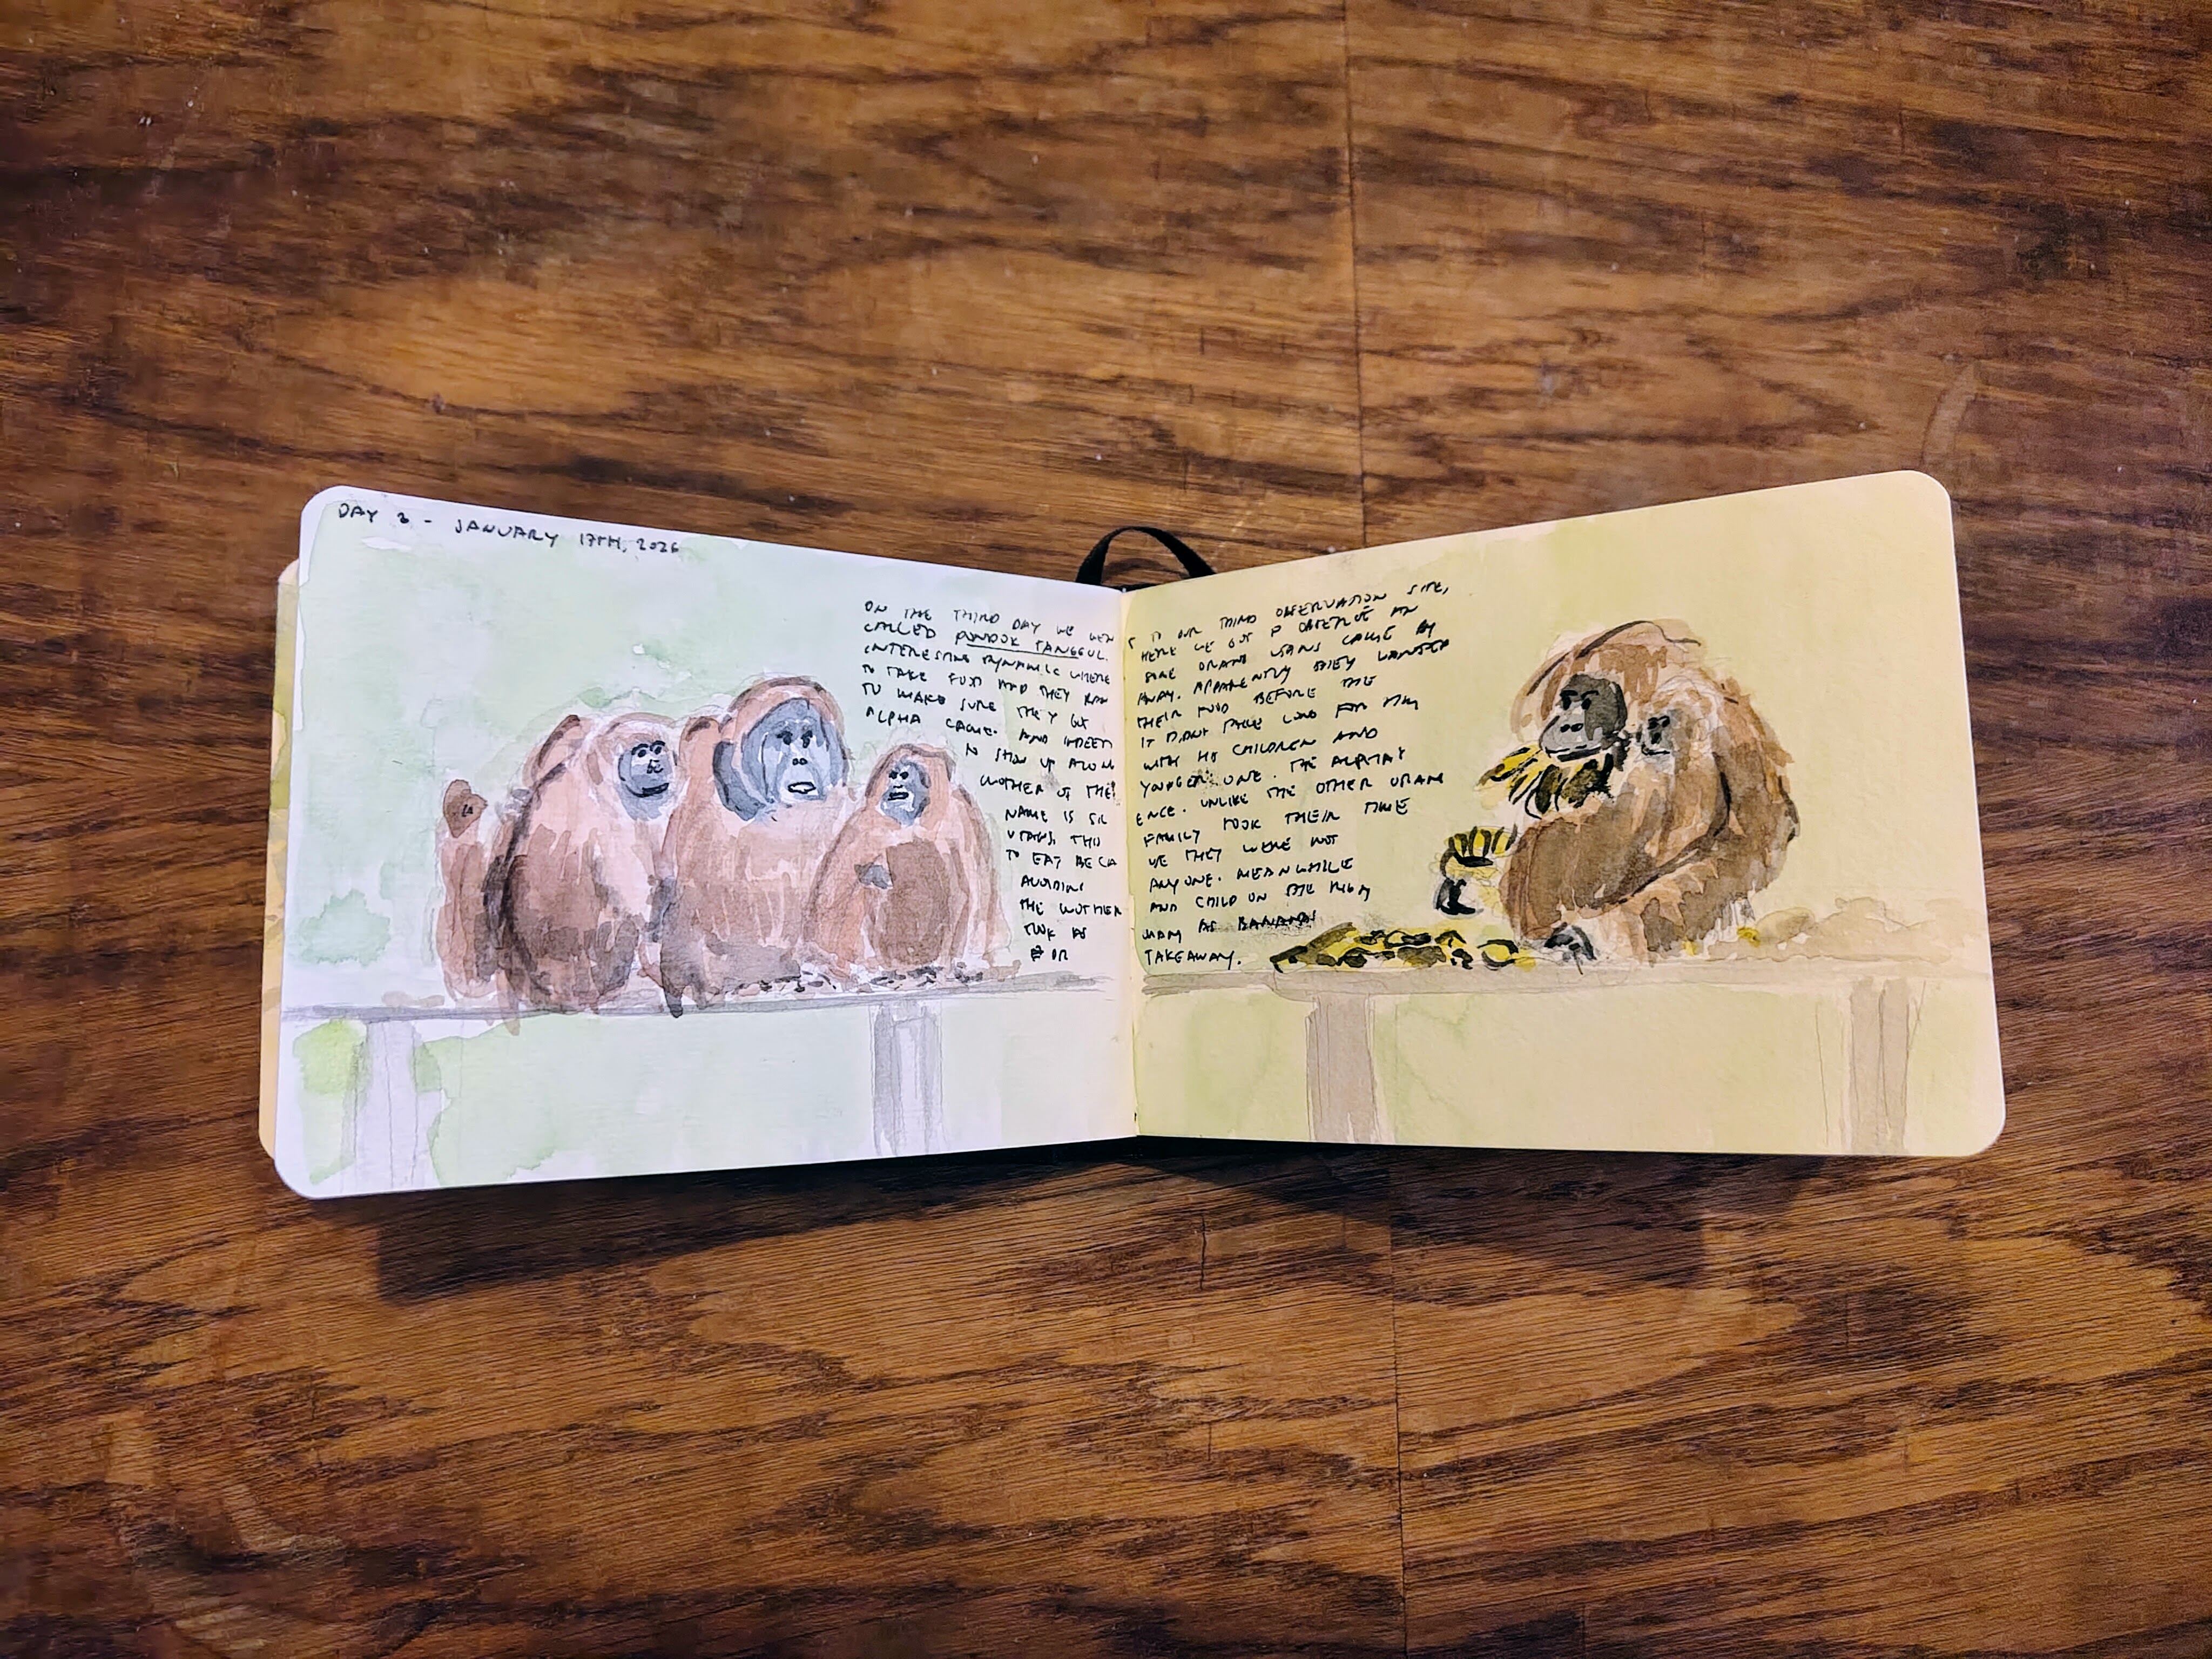 DAY 3 - JANUARY 17TH, 2026
ON THE THIRD DAY WE WENT TO OUR THIRD OBSERVATION SITE,
CALLED PONDOK TANGGUL. HERE WE GOT TO OBSERVE AN
INTERESTING DYNAMIC WHERE SOME ORANG UTANS CAME BY
TO TAKE FOOD AND THEY RAN AWAY. APPARENTLY THEY WANTED
TO MAKE SURE THEY GOT THEIR FOOD BEFORE THE
ALPHA CAME. AND INDEED IT DIDN'T TAKE LONG FOR HIM
TO SHOW UP ALONG WITH HIS CHILDREN AND
MOTHER OF THE YOUNGER ONE. THE ALPHA'S
NAME IS SILENCE. UNLIKE THE OTHER ORANG
UTANS, THIS FAMILY TOOK THEIR TIME
TO EAT BECAUSE THEY WERE NOT
AVOIDING ANYONE. MEANWHILE
THE MOTHER AND CHILD ON THE RIGHT
TOOK AS MANY AS BANANAS
FOR TAKEAWAY.